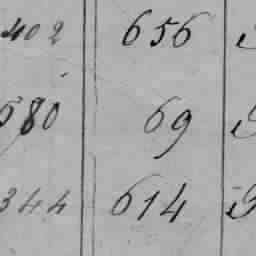 402 656
580 69
344 614